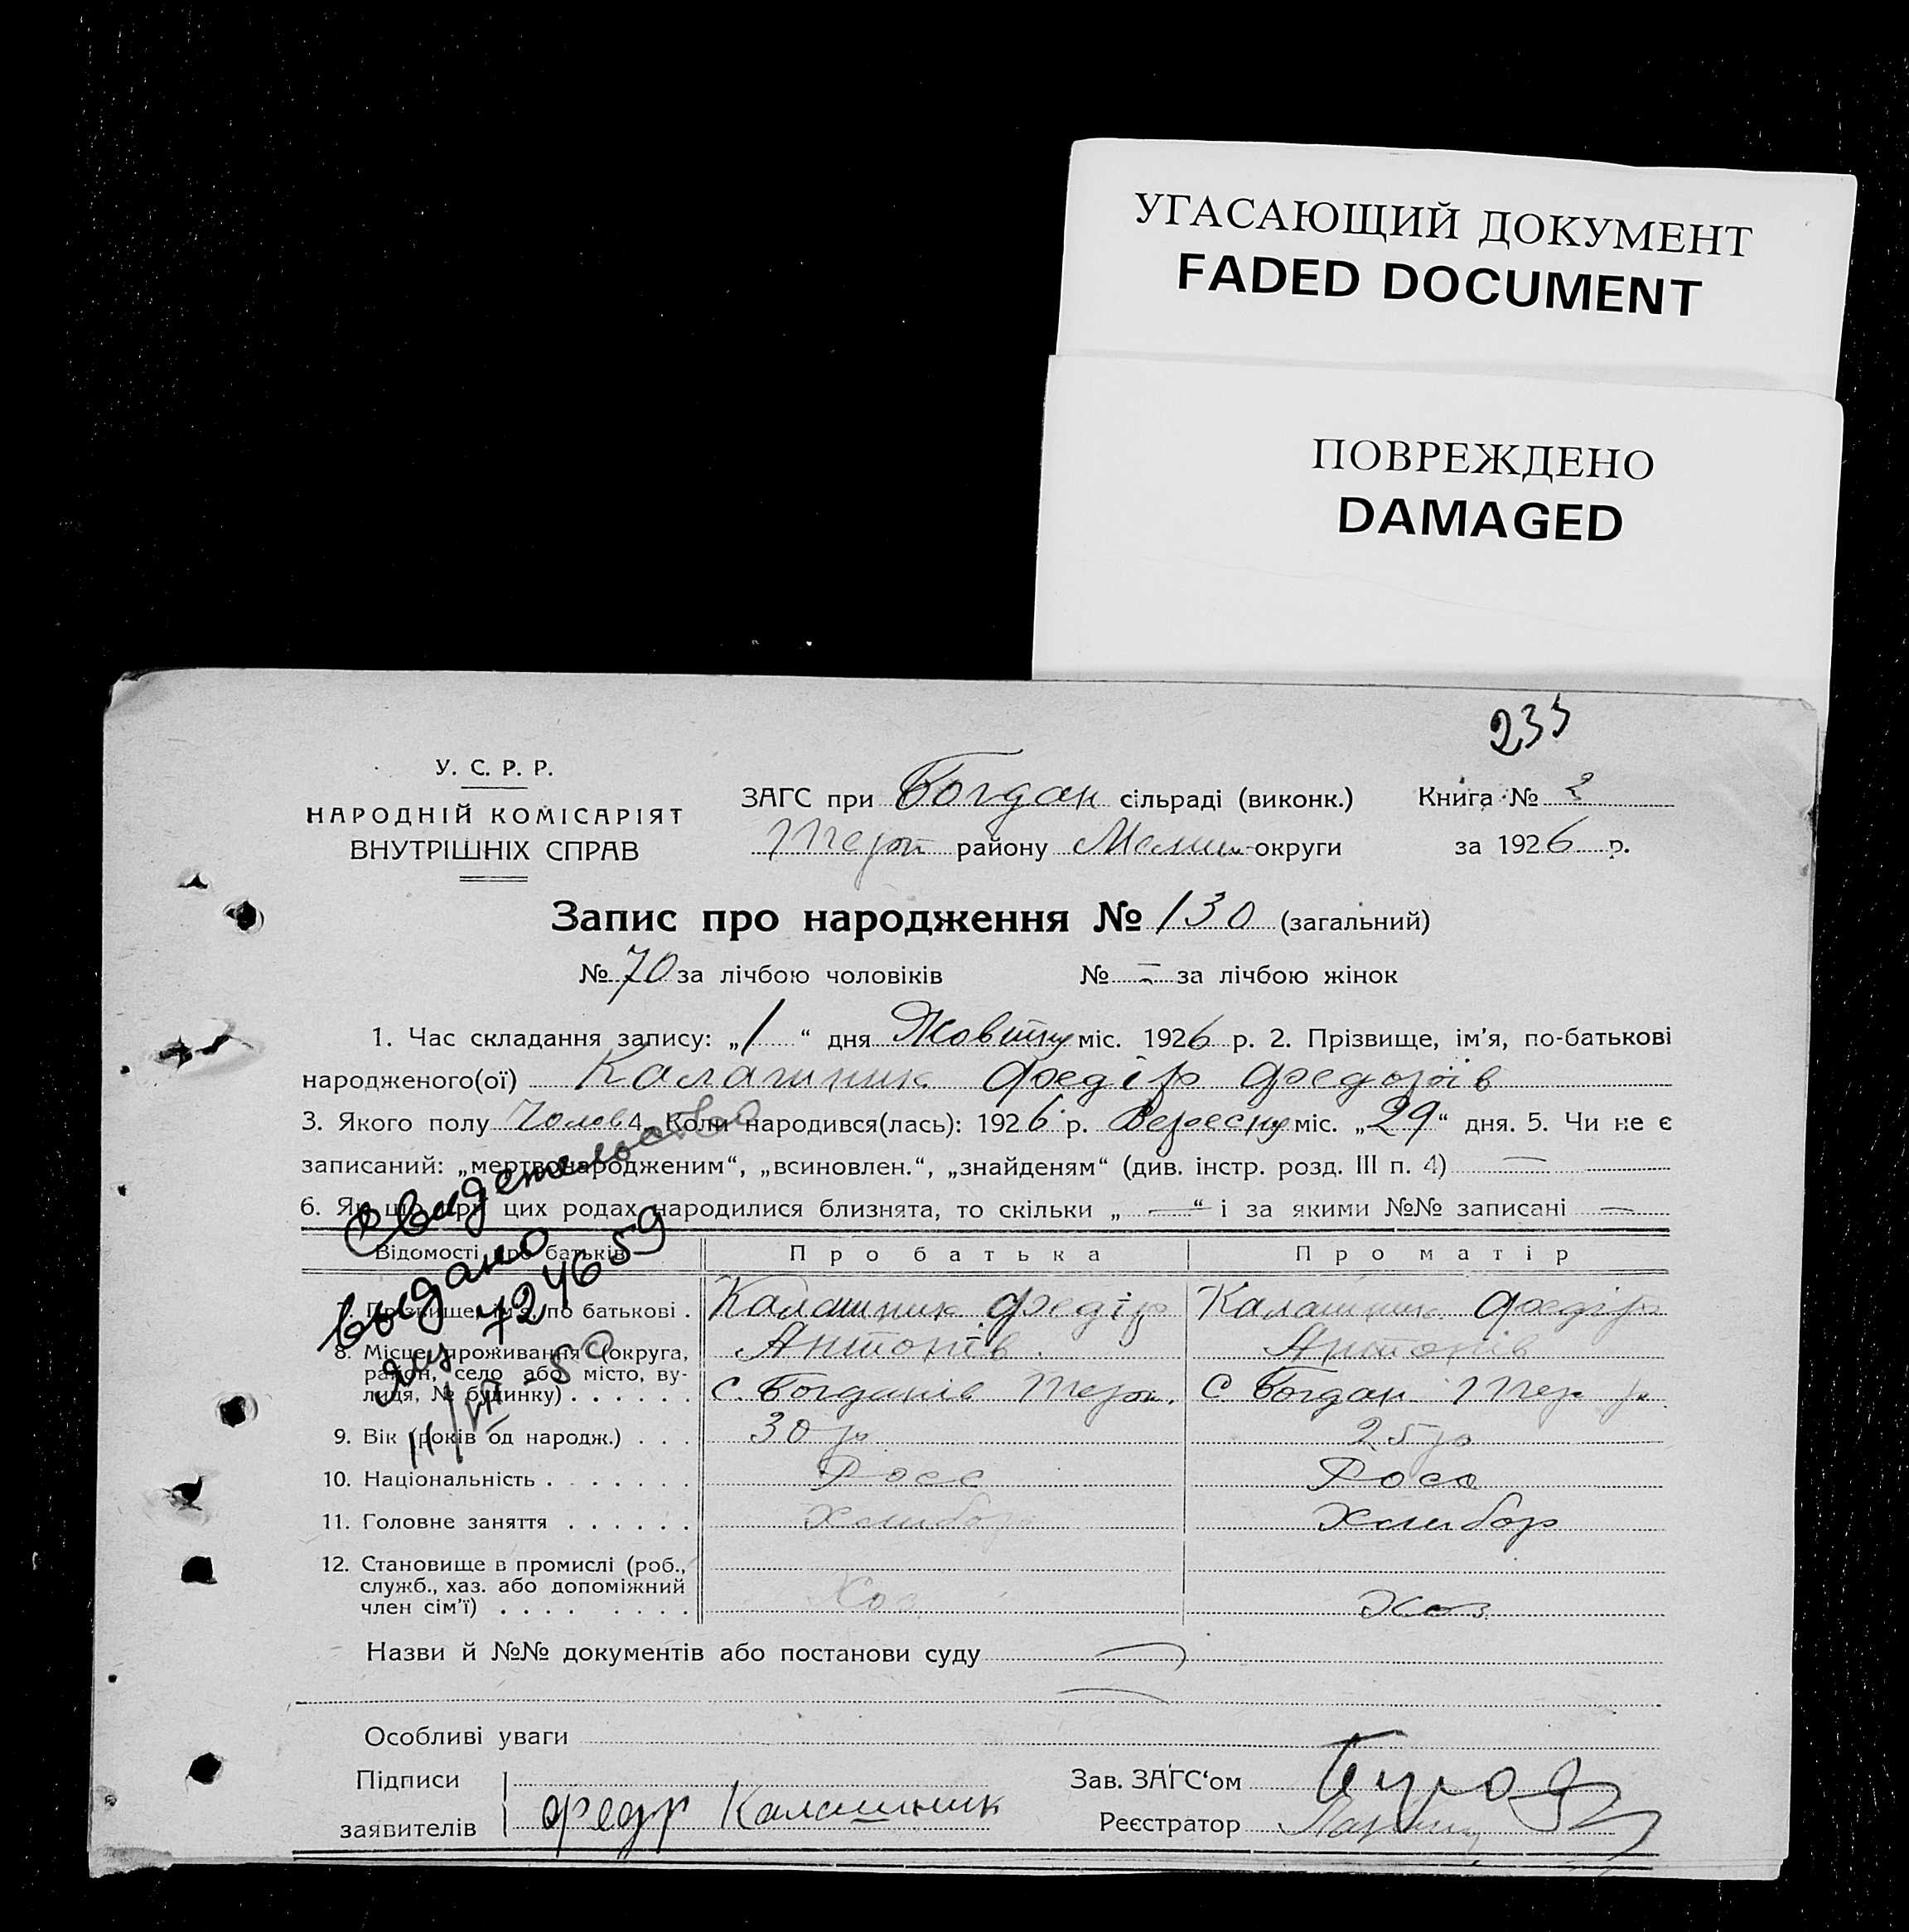 УГАСАЮЩИЙ ДОКУМЕНТ
FADED DOCUMENT
ПОВРЕЖДЕНО
DAMAGED
233
У. С. Р. Р.
НАРОДНІЙ КОМІСАРІЯТ
ВНУТРІШНІХ СПРАВ
ЗАГС при Богдан сільраді (виконк.) Книга № 2
району округи за 1926 р.
Запис про народження № 130 (загальний)
№ 70 за лічбою чоловіків № — за лічбою жінок
1. Час складання запису: „1“ дня Жовтня міс. 1926 р. 2. Прізвище, ім’я, по-батькові
народженого(ої) Калашник Федір Федорів
3. Якого полу Чолов 4. Коли народився(лась): 1926 р. Вересня міс. „29“ дня. 5. Чи не є
записаний: „мертвонародженим“, „всиновлен.“, „знайденям“ (див. інстр. розд. III п. 4) —
6. Як що при цих родах народилися близнята, то скільки „—“ і за якими №№ записані —
Свидетельство
выдано
724659
11/VII 50
Відомості про батьків Про батька Про матір
7. Прізвище, ім’я, по батькові . Калашник Федір Калашник Федір
Антонів Антонів
8. Місце проживання (округа,
район, село або місто, ву-
лиця, № будинку) . . . . . . с. Богданів с Богдан
9. Вік (років од народж.) . . . 30 р 25 р
10. Національність . . . . . . . Росс Росс
11. Головне заняття . . . . . . Хлибор Хлибор
12. Становище в промислі (роб.,
служб., хаз. або допоміжний
член сім’ї) . . . . . . . . Хоз Хоз
Назви й №№ документів або постанови суду —
Особливі уваги
Підписи
заявителів Федір Калашник
Зав. ЗАГС‘ом
Реєстратор